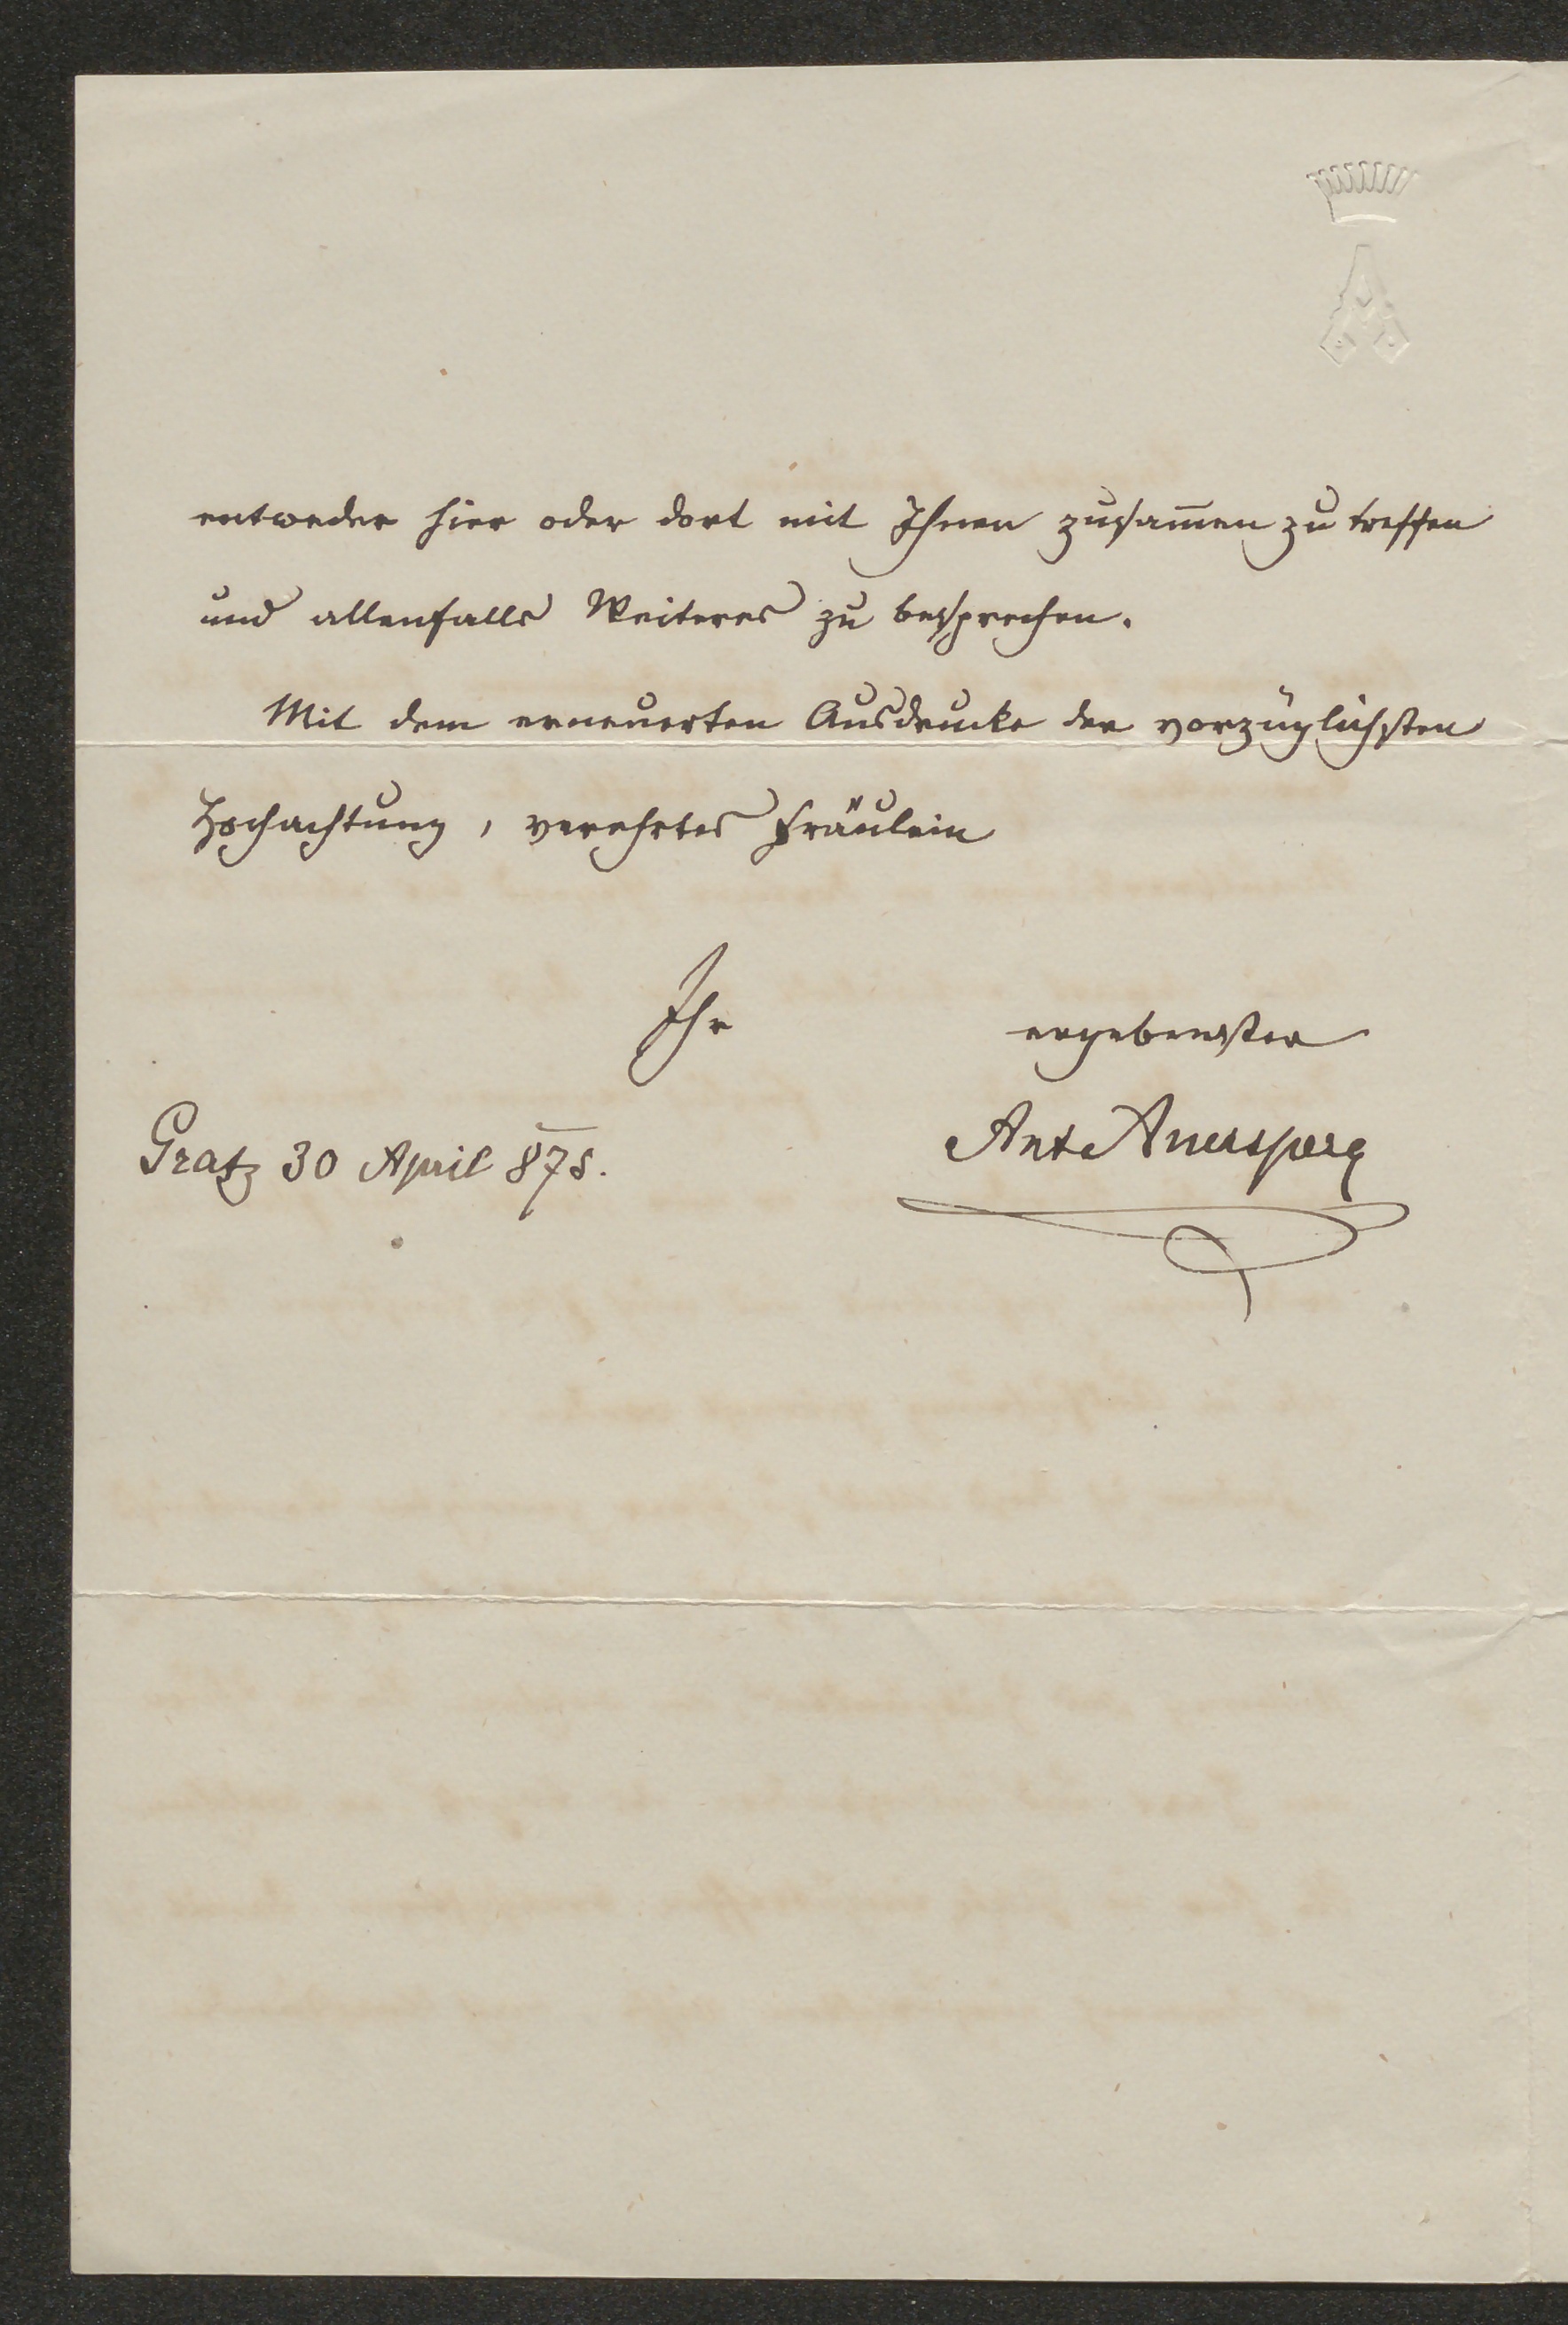 entweder hier oder dort mit Ihnen zusam̅en zu treffen
und allenfalls Weiteres zu besprechen.
Mit dem erneuerten Ausdrucke der vorzüglichsten
Hochachtung, verehrtes Fräulein
Ihr
ergebenster
Ant Auersperg
Gratz 30 April 875.